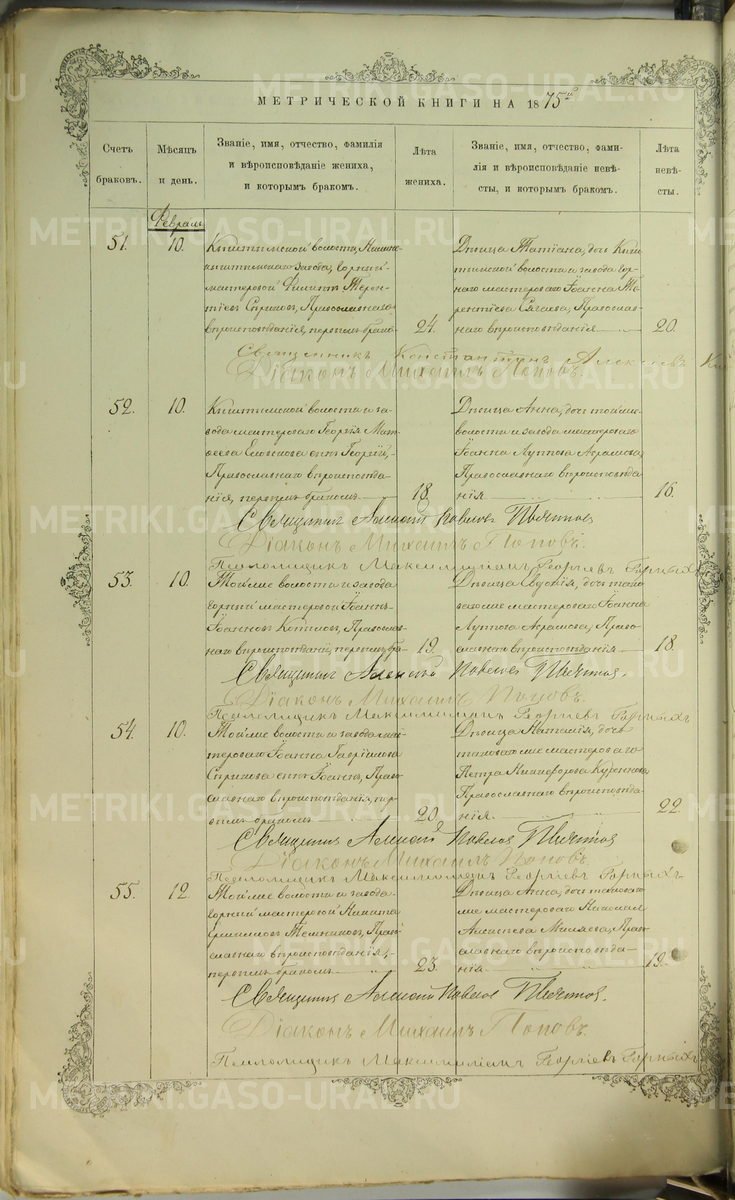 МЕТРИЧЕСКОЙ КНИГИ НА 1875й
Счетъ браковъ.
Мѣсяцъ и день.
Званіе, имя, отчество, фамилія
и вѣроисповѣданіе жениха,
и которымъ бракомъ.
Лѣта жениха.
Званіе, имя, отчество, фами-
лія и вѣроисповѣданіе невѣ-
сты, и которымъ бракомъ.
Лѣта невѣ-
сты.
Февраль
51.
10.
Кыштымской волости, Нижне-
кыштымскаго завода, горный
мастеровой Филиппъ Терен-
тіевъ Православнаго
вѣроисповѣданія, первымъ бракомъ
24.
Дѣвица Татіана, дочь Кыш-
тымской волости и завода гор-
наго мастероваго Іоанна Те-
рентіева Православ-
наго вѣроисповѣданія
20.
Священникъ Константинъ Алексѣевъ
Діаконъ Михаилъ Поповъ.
52.
10.
Кыштымской волости и за-
вода мастероваго Георгія Мат-
ѳеева сынъ Георгій,
Православнаго вѣроисповѣда-
нія, первымъ бракомъ
18.
Дѣвица Анна, дочь той же
волости и завода мастероваго
Іоанна Луппова Абрамова,
Православнаго вѣроисповѣда-
нія
16.
Священникъ Алексѣй Павловъ
Діаконъ Михаилъ Поповъ.
Псаломщикъ Максимиліанъ Георгіевъ Горныхъ
53.
10.
Той же волости и завода
горный мастеровой Іоаннъ
Іоанновъ Православ-
наго вѣроисповѣданія, первымъ бра-
19.
Дѣвица дочь тако-
ваго же мастероваго Іоанна
Луппова Абрамова, Право-
славнаго вѣроисповѣданія
18.
Священникъ Алексѣй Павловъ
Діаконъ Михаилъ Поповъ.
Псаломщикъ Максимиліанъ Георгіевъ Горныхъ
54.
10.
Той же волости и завода мас-
тероваго Іоанна Гавріилова
сынъ Іоаннъ, Право-
славнаго вѣроисповѣданія, пер-
вымъ бракомъ
20.
Дѣвица Наталія, дочь
таковаго же мастероваго
Петра Никифорова
Православнаго вѣроисповѣда-
нія.
22.
Священникъ Алексѣй Павловъ
Діаконъ Михаилъ Поповъ.
Псаломщикъ Максимиліанъ Георгіевъ Горныхъ
55.
12.
Той же волости и завода
горный мастеровой Никита
Темниковъ, Право-
славнаго вѣроисповѣданія,
первымъ бракомъ
23.
Дѣвица Анна, дочь таковаго
же мастероваго Николая
Право-
славнаго вѣроисповѣда-
нія
19.
Священникъ Алексѣй Павловъ
Діаконъ Михаилъ Поповъ.
Псаломщикъ Максимиліанъ Георгіевъ Горныхъ
METRIKI.GASO-URAL.RU